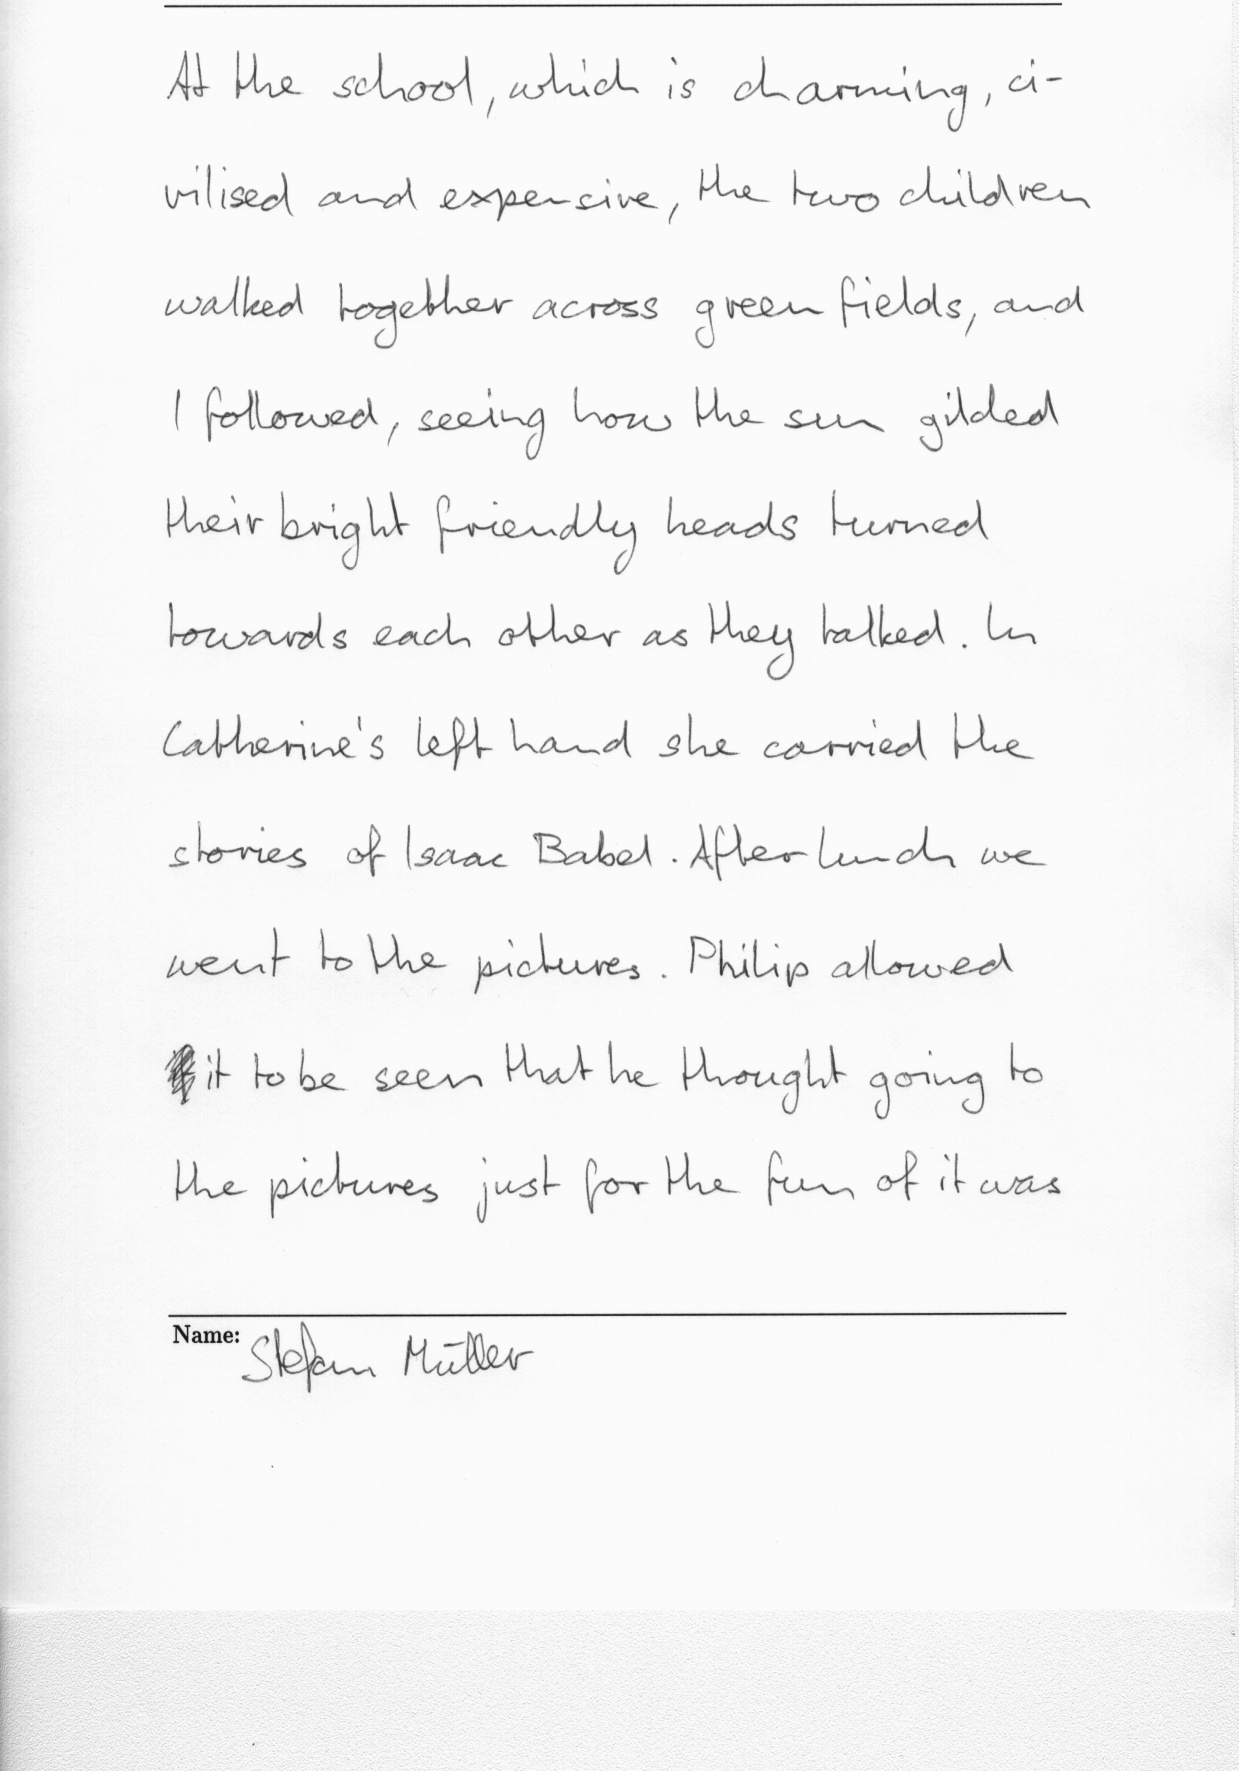 At the school, which is charming, ci-
vilised and expensive, the two children
walked together across green fields, and
I followed, seeing how the sun gilded
their bright friendly heads turned
towards each other as they talked. In
Catherine's left hand she carried the
stories of Isaac Babel. After lunch we
went to the pictures. Philip allowed
it to be seen that he thought going to
the pictures just for the fun of it was
Name: Stefan Müller